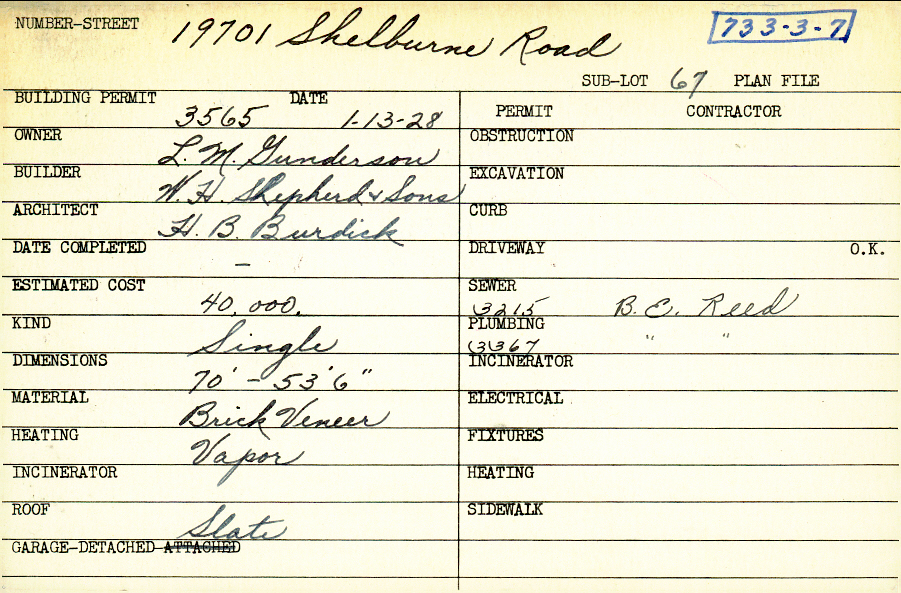 NUMBER-STREET 19701 Shelburne Road 733-3-7
SUB-LOT 67 PLAN FILE
BUILDING PERMIT 3565 DATE 1-13-28
PERMIT CONTRACTOR
OWNER L. M. Gunderson
OBSTRUCTION
BUILDER W. H. Shepherd & Sons
EXCAVATION
ARCHITECT H. B. Burdick
CURB
DATE COMPLETED –
DRIVEWAY O.K.
ESTIMATED COST 40,000.
SEWER 3215 B. E. Reed
KIND Single
PLUMBING 3367 " "
DIMENSIONS 70' - 53'6"
INCINERATOR
MATERIAL Brick Veneer
ELECTRICAL
HEATING Vapor
FIXTURES
INCINERATOR
HEATING
ROOF Slate
SIDEWALK
GARAGE-DETACHED ATTACHED